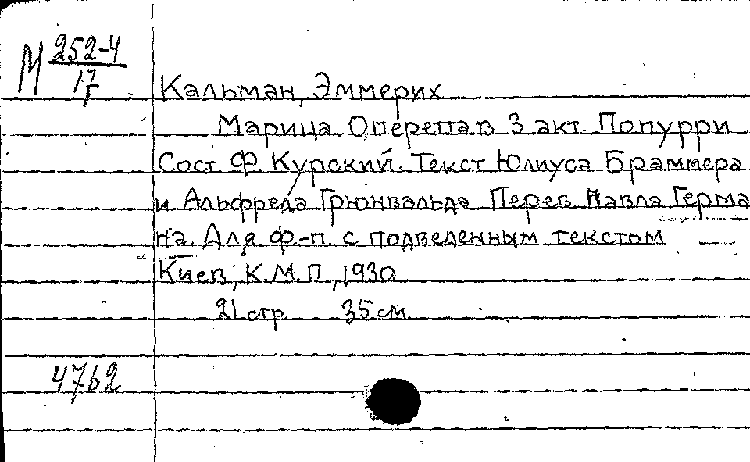 М 252-4
17
Г
Кальман, Эммерих
Марица Оперетта в 3 акт. Попурри
Сост. Ф. Курский. Текст Юлиуса Браммера
и Альфреда Грюнвальда Перев. Павла Герма
на. Для ф-п. с подведенным текстом
Киев, К.М.П., 1930
21 стр. 35 см.
4762